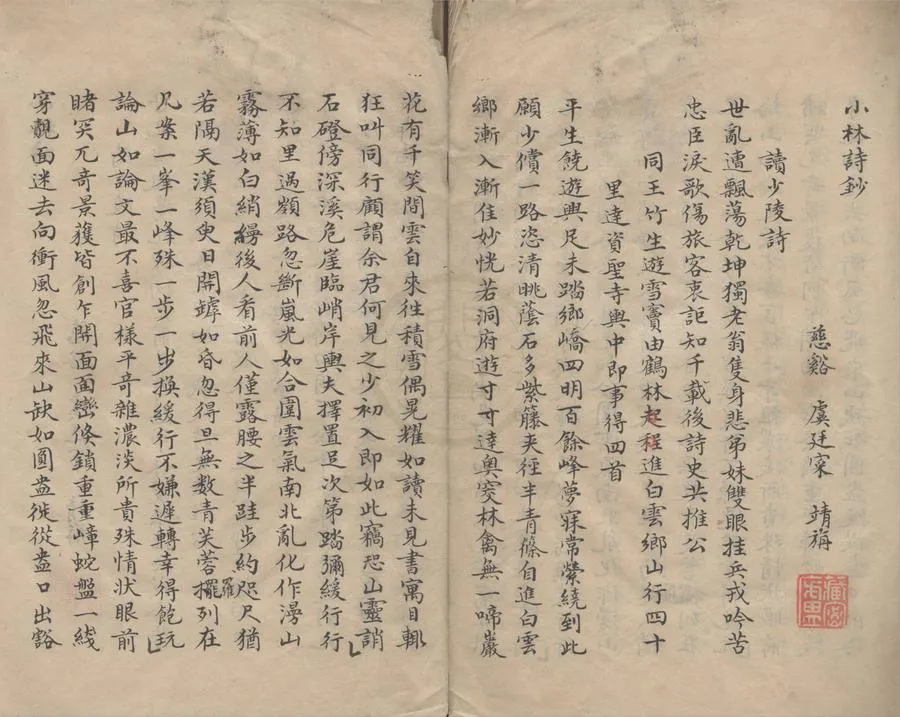 小林詩鈔
慈谿　虞廷寀　靖旃
讀少陵詩
世亂遭飄蕩乾坤獨老翁隻身悲弟妹雙眼挂兵戎吟苦
忠臣淚歌傷旅客衷詎知千載後詩史共推公
同王竹生遊雪竇由鶴林起程進白雲鄉山行四十
里達資聖寺輿中即事得四首
平生饒遊興足未踏鄉嶠四明百餘峰夢寐常縈繞到此
願少償一路恣清眺蔭石多紫籐夾徑半青篠自進白雲
鄉漸入漸佳妙恍若洞府遊寸寸達奧窔林禽無一啼巖
花有千笑間雲自來往積雪偶晃耀如讀未見書寓目輒
狂叫同行顧謂余君何見之少初入即如此竊恐山靈誚
石磴傍深溪危崖臨峭岸輿夫擇置足次第踏彌緩行行
不知里過嶺路忽斷嵐光如合圍雲氣南北亂化作漫山
霧薄如白綃縵後人看前人僅露腰之半跬步約咫尺猶
若隔天漢須臾日開罅如昏忽得旦無數青芙蓉擺羅列在
几案一峯一峰殊一步一步換緩行不嫌遲轉幸得飽玩
論山如論文最不喜官樣平奇雜濃淡所貴殊情狀眼前
睹突兀奇景獲皆創乍開面面巒倏鎖重重嶂蛇盤一綫
穿覿面迷去向衝風忽飛來山缺如圓盎徙從盎口出豁